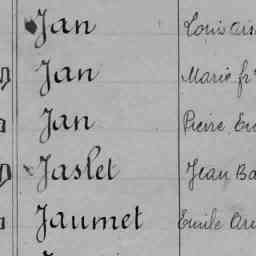 Jan Louis
Jan Marie fr
Jan Pierre
Jaslet Jean Ba
Jaumet Emile